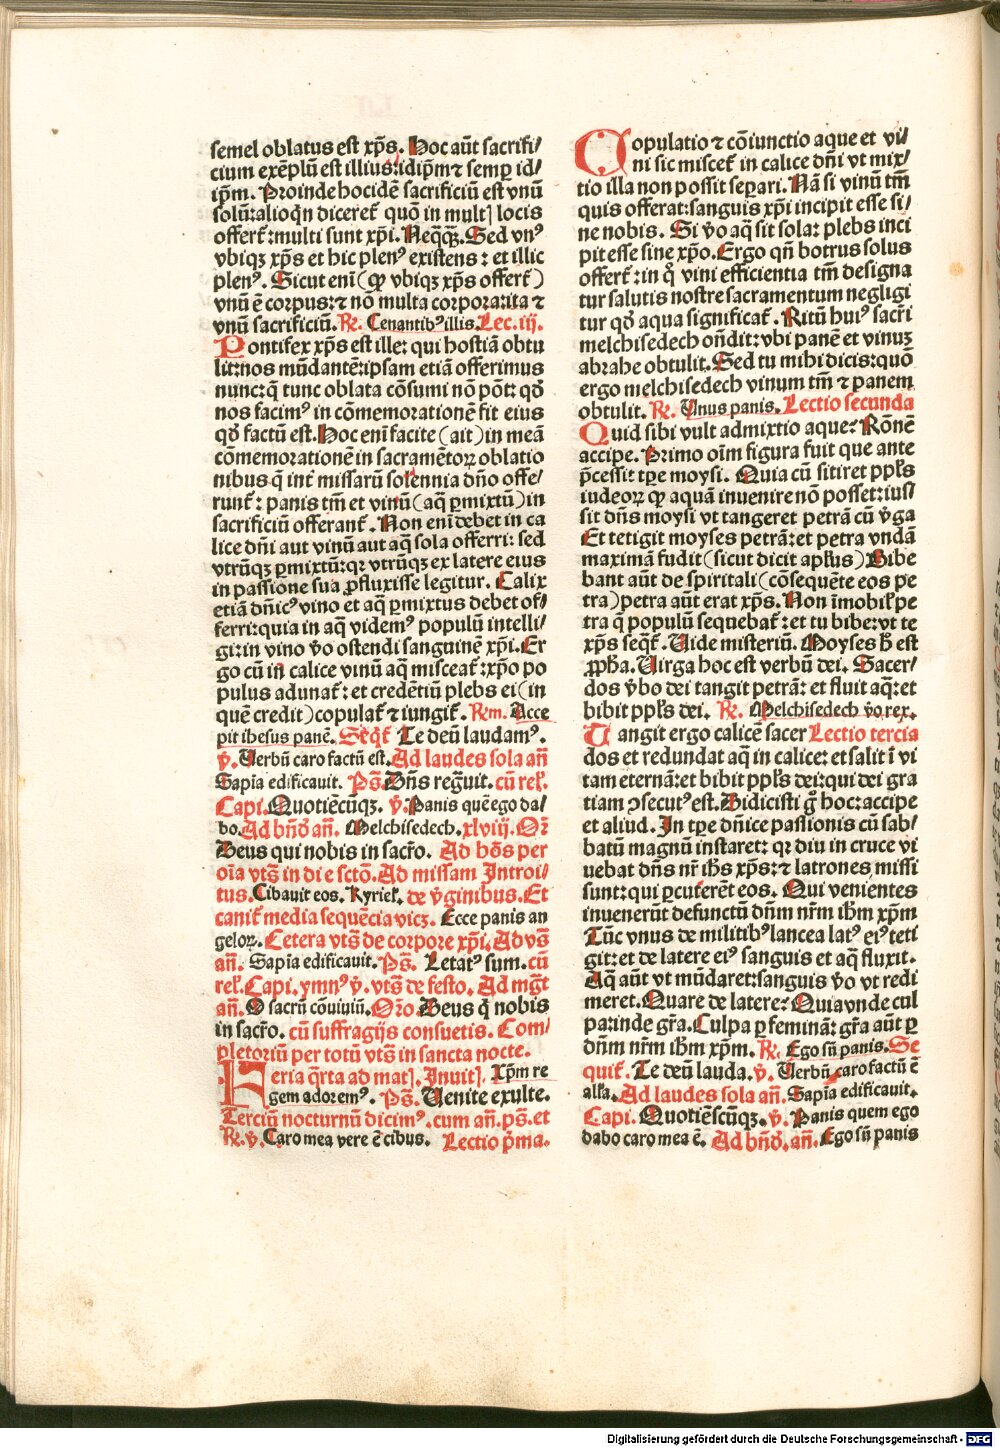 semel oblatus est xp̄s. Hoc aūt sacrifi/
cium exēplū est illius: idip̄m ⁊ semꝑ id/
ip̄m. Proinde hocidē sacrificiū est vnū
solū: alioq̄n diceret᷑ quō in multꝭ locis
offert᷑: multi sunt xp̄i. Neq̄ꝙ. Sed vnꝰ
vbiqꝫ xp̄s et hic plenꝰ existens: et illic
plenꝰ. Sicut eni (ꝙ vbiqꝫ xp̄s offert᷑)
vnū ē corpus: ⁊ nō multa corpora: ita ⁊
vnū sacrificiū. R̄. Cenantibꝰ illis. Lec. iij.
Pontifex xp̄s est ille: qui hostiā obtu
lit: nos mūdantē: ipsam etiā offerimus
nunc: q̄ tunc oblata cōsumi nō pōt: qd̄
nos facimꝰ in cōmemorationē fit eius
qd̄ factū est. Hoc eni facite (ait) in meā
cōmemorationē in sacramētoꝝ oblatio
nibus q̄ int᷑ missarū solennia dn̄o offe/
runt᷑: panis tm̄ et vinū (aq̄ ꝑmixtū) in
sacrificiū offerant᷑. Non eni debet in ca
lice dn̄i aut vinū aut aq̄ sola offerri: sed
vtrūqꝫ ꝑmixtū: qꝛ vtrūqꝫ ex latere eius
in passione sua ꝓfluxisse legitur. Calix
etiā dn̄icꝰ vino et aq̄ ꝑmixtus debet of/
ferri: quia in aq̄ videmꝰ populū intelli/
gi: in vino v̄o ostendi sanguinē xp̄i. Er
go cū in calice vinū aq̄ misceat᷑: xp̄o po
pulus adunat᷑: et credētiū plebs ei (in
quē credit) copulat᷑ ⁊ iungit᷑. R̄m. Acce
pit ihesus panē. Seqt᷑ Te deū laudamꝰ.
v̄. Verbū caro factū est. Ad laudes sola an̄
Sapia edificauit. Ps̄. Dn̄s regn̄uit. cū rel̄.
Capi. Quotiēcūqꝫ. v̄. Panis quē ego da/
bo. Ad bn̄d̄ an̄. Melchisedech. xlviij. Or̄
Deus qui nobis in sacr̄o. Ad hōs per
oīa vts̄ in die sctō. Ad missam Introi/
tus. Cibauit eos. Kyriel̄. de v̄ginibus. Et
canit᷑ media sequēcia vicꝫ. Ecce panis an
geloꝝ. Cetera vts̄ de corpore xp̄i. Ad vs̄
an̄. Sapia edificauit. Ps̄. Letatꝰ sum. cū
rel̄. Capi. ymnꝰ v̄. vts̄ de festo. Ad mg̅t
an̄. O sacrū cōuiuiū. Oro̅. Deus q̄ nobis
in sacr̄o. cū suffragijs consuetis. Com/
pletoriū per totū vts̄ in sancta nocte.
Feria q̄rta ad matꝭ. Inuitꝭ. Xp̄m re
gem adoremꝰ. Ps̄. Venite exulte.
Terciū nocturnū dicimꝰ. cum an̄. ps̄. et
R̄. v̄. Caro mea vere ē cibus. Lectio p̄ma.
Copulatio ⁊ cōiunctio aque et vi/
ni sic miscet᷑ in calice dn̄i vt mix/
tio illa non possit seꝑari. Nā si vinū tm̄
quis offerat: sanguis xp̄i incipit esse si/
ne nobis. Si v̄o aq̄ sit sola: plebs inci
pit esse sine xp̄o. Ergo qn̄ botrus solus
offert᷑: in q̄ vini efficientia tm̄ designa
tur salutis nostre sacramentum negligi
tur qd̄ aqua significat᷑. Ritū huiꝰ sacr̄i
melchisedech on̄dit: vbi panē et vinuꝫ
abrahe obtulit. Sed tu mihi dicis: quō
ergo melchisedech vinum tm̄ ⁊ panem
obtulit. R̄. Unus panis. Lectio secunda
Quid sibi vult admixtio aque? Rōnē
accipe. Primo oīm figura fuit que ante
p̄cessit: tꝑe moysi. Quia cū sitiret ppl̄s
iudeoꝝ ꝙ aquā inuenire nō posset: ius/
sit dn̄s moysi vt tangeret petrā cū v̄ga
Et tetigit moyses petrā: et petra vndā
maximā fudit (sicut dicit apl̄us) Bibe
bant aūt de spiritali (cōsequēte eos pe
tra) petra aūt erat xp̄s. Non īmobil̄ pe
tra q̄ populū sequebat᷑: et tu bibe: vt te
xp̄s seqt᷑. Vide misteriū. Moyses h̄ est
ꝓph̄a. Virga hoc est verbū dei. Sacer/
dos v̄bo dei tangit petrā: et fluit aq̄: et
bibit ppl̄s dei. R̄. Melchisedech v̄o rex.
Tangit ergo calicē sacer Lectio tercia
dos et redundat aq̄ in calice: et salit ī vi
tam eternā: et bibit ppl̄s dei: qui dei gra
tiam ↄsecutꝰ est. Didicisti g̊ hoc: accipe
et aliud. In tꝑe dn̄ice passionis cū sab/
batū magnū instaret: qꝛ diu in cruce vi
uebat dn̄s nr̄ ih̄s xp̄s: ⁊ latrones missi
sunt: qui ꝑcuterēt eos. Qui venientes
inuenerūt defunctū dn̄m nr̄m ih̄m xp̄m
Tūc vnus de militibꝰ lancea latꝰ eiꝰ teti
git: et de latere eiꝰ sanguis et aq̄ fluxit.
Aq̄ aūt vt mūdaret: sanguis v̄o vt redi
meret. Quare de latere? Quia vnde cul
pa: inde gr̄a. Culpa ꝑ feminā: gr̄a aūt ꝑ
dn̄m nr̄m ih̄m xp̄m. R̄. Ego sū panis. Se
quit᷑. Te deū lauda. v̄. Verbū caro factū ē
all̄a. Ad laudes sola an̄. Sapia edificauit.
Capi. Quotiēscūqꝫ. v̄. Panis quem ego
dabo caro mea ē. Ad bn̄d̄. an̄. Ego sū panis
Digitalisierung gefördert durch die Deutsche Forschungsgemeinschaft - DFG